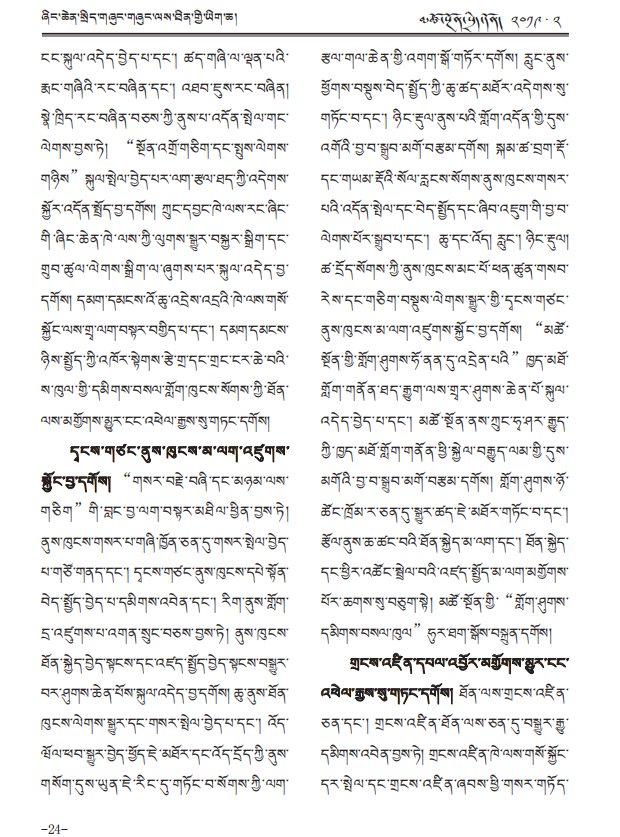 ཞིང་ཆེན་སྲིད་གཞུང་གཞུང་ལས་ཐིན་གྱི་ཡིག་ཆ།
༢༠༡༩ · ༢
ངང་སྐུལ་འདེད་བྱེད་པ་དང་། ཚད་གཞི་ལ་ལྡན་པའི་
རྨང་གཞིའི་རང་བཞིན་དང་། འཐབ་ཇུས་རང་བཞིན།
སྣེ་ཁྲིད་རང་བཞིན་བཅས་ཀྱི་ནུས་པ་འདོན་སྤེལ་གང་
ལེགས་བྱས་ཏེ། “སྔོན་འགྲོ་གཅིག་དང་སྤུས་ལེགས་
གཉིས”སྐུལ་སྤེལ་བྱེད་པར་ལག་རྩལ་ཐད་ཀྱི་འདེགས་
སྐྱོར་འདོན་སྤྲོད་བྱ་དགོས། ཀྲུང་དབྱང་ཁེ་ལས་རང་ཞིང་
གི་ཞིང་ཆེན་ཁེ་ལས་ཀྱི་ལུགས་སྒྱུར་བསྐྱར་སྒྲིག་དང་
གྲུབ་ཚུལ་ལེགས་སྒྲིག་ལ་ཞུགས་པར་སྐུལ་འདེད་བྱ་
དགོས། དམག་དམངས་འོ་ཆུ་འདྲེས་འདྲའི་ཁེ་ལས་གསོ་
སྐྱོང་ལས་གྲྭ་ལག་བསྟར་བགྱིད་པ་དང་། དམག་དམངས་
ཉིས་སྤྱོད་ཀྱི་འཁོར་སྟེགས་རྩེ་གྲ་དང་གྲང་ངར་ཆེ་བའི་
ས་ཁུལ་གྱི་དམིགས་བསལ་གློག་ཁུངས་སོགས་ཀྱི་ཐོན་
ལས་མགྱོགས་མྱུར་ངང་འཕེལ་རྒྱས་སུ་གཏང་དགོས།
དྭངས་གཙང་ནུས་ཁུངས་མ་ལག་འཛུགས་
སྐྱོང་བྱ་དགོས། “གསར་བརྗེ་བཞི་དང་མཉམ་ལས་
གཅིག”གི་བླང་བྱ་ལག་བསྟར་མཐིལ་ཕྱིན་བྱས་ཏེ།
ནུས་ཁུངས་གསར་པ་གཞི་ཁྱོན་ཅན་དུ་གསར་སྤེལ་བྱེད་
པ་གཙོ་གནད་དང་། དྭངས་གཙང་ནུས་ཁུངས་དཔེ་སྟོན་
བེད་སྤྱོད་བྱེད་པ་དམིགས་འབེན་དང་། རིག་ནུས་གློག་
དྲ་འཛུགས་པ་འགན་སྲུང་བཅས་བྱས་ཏེ། ནུས་ཁུངས་
ཐོན་སྐྱེད་བྱེད་སྟངས་དང་འཛད་སྤྱོད་བྱེད་སྟངས་བསྒྱུར་
བར་ཤུགས་ཆེན་པོས་སྐུལ་འདེད་བྱ་དགོས། ཆུ་ནུས་ཐོན་
ཁུངས་ལེགས་སྒྱུར་དང་གསར་སྤེལ་བྱེད་པ་དང་། འོད་
ཝོལ་ཕབ་སྒྱུར་བྱེད་ཕྱོད་ཇེ་མཐོར་དང་འོད་དྲོད་ཀྱི་ནུས་
གསོག་དུས་ཡུན་ཇེ་རིང་དུ་གཏོང་བ་སོགས་ཀྱི་ལག་
རྩལ་གལ་ཆེན་གྱི་འགག་སྒོ་གཏོར་དགོས། རླུང་ནུས་
ཕྱོགས་བསྡུས་བེད་སྤྱོད་ཀྱི་ཆུ་ཚད་མཐོར་འདེགས་སུ་
གཏོང་བ་དང་། ཉིང་རྡུལ་ནུས་པའི་གློག་འདོན་གྱི་དུས་
འགོའི་བྱ་བ་སྒྲུབ་མགོ་བརྩམ་དགོས། སྐམ་ཚ་བྲག་རྡོ་
དང་གཡམ་རྡོའི་སོལ་རླངས་སོགས་ནུས་ཁུངས་གསར་
པའི་འདོན་སྤེལ་དང་བེད་སྤྱོད་དང་ཞིབ་འཇུག་གི་བྱ་བ་
ལེགས་པོར་སྒྲུབ་པ་དང་། ཆུ་དང་འོད། རླུང་། ཉིང་རྡུལ།
ཚ་དྲོད་སོགས་ཀྱི་ནུས་ཁུངས་མང་པོ་ཕན་ཚུན་གསབ་
རེས་དང་གཅིག་བསྡུས་ལེགས་སྒྱུར་གྱི་དྭངས་གཙང་
ནུས་ཁུངས་མ་ལག་འཛུགས་སྐྱོང་བྱ་དགོས། “མཚོ་
སྔོན་གྱི་གློག་ཤུགས་ཧོ་ནན་དུ་འདྲེན་པའི”ཁྱད་མཐོ་
གློག་གནོན་ཐད་རྒྱུག་ལས་གྲྭར་ཤུགས་ཆེན་པོ་སྐུལ་
འདེད་བྱེད་པ་དང་། མཚོ་སྔོན་ནས་ཀྲུང་ཧྭ་ཤར་རྒྱུད་
ཀྱི་ཁྱད་མཐོ་གློག་གནོན་ཕྱི་སྐྱེལ་བརྒྱུད་ལམ་གྱི་དུས་
མགོའི་བྱ་བ་སྒྲུབ་མགོ་བརྩམ་དགོས། གློག་ཤུགས་ཉོ་
ཚོང་ཁྲོམ་ར་ཅན་དུ་སྒྱུར་ཚད་ཇེ་མཐོར་གཏོང་བ་དང་།
རྩོལ་ནུས་ཆ་ཚང་བའི་ཐོན་སྐྱེད་མ་ལག་དང་། ཐོན་སྐྱེད་
དང་ཕྱིར་འཚོང་སྦྲེལ་བའི་འཛད་སྤྱོད་མ་ལག་མགྱོགས་
པོར་ཆགས་སུ་བཅུག་སྟེ། མཚོ་སྔོན་གྱི་“གློག་ཤུགས་
དམིགས་བསལ་ཁུལ”ཧུར་ཐག་སྒོས་བསྐྲུན་དགོས།
གྲངས་འཛིན་དཔལ་འབྱོར་མགྱོགས་མྱུར་ངང་
འཕེལ་རྒྱས་སུ་གཏང་དགོས། ཐོན་ལས་གྲངས་འཛིན་
ཅན་དང་། གྲངས་འཛིན་ཐོན་ལས་ཅན་དུ་བསྒྱུར་རྒྱུ་
དམིགས་འབེན་བྱས་ཏེ། གྲངས་འཛིན་ཁེ་ལས་གསོ་སྐྱོང་
དར་སྤེལ་དང་གྲངས་འཛིན་ཞབས་ཕྱི་གསར་གཏོད་
–24–